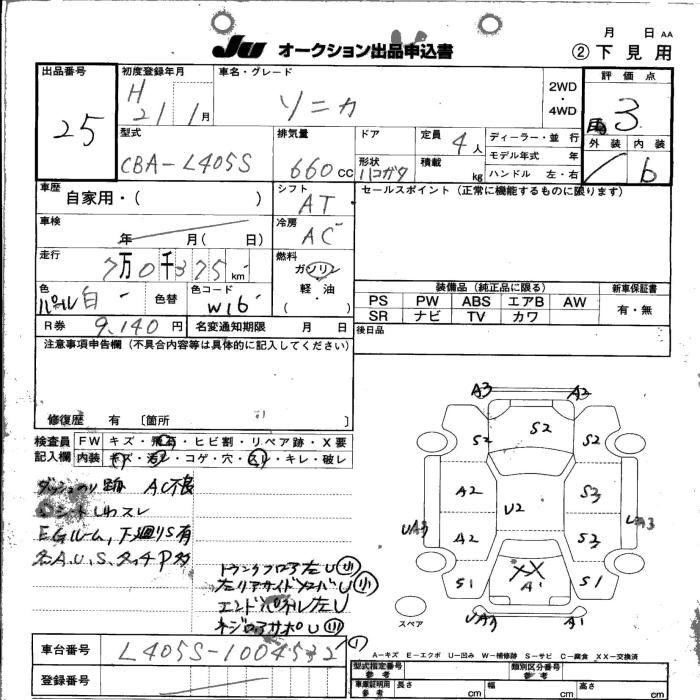 月 日 AA
JU オークション出品申込書 ②下見用
出品番号 25
初度登録年月 H 21 1月
車名・グレード ソニカ
2WD・4WD
評価点 3
外装 内装 6
型式 CBA-L405S
排気量 660cc
ドア
形状 ハコガタ
定員 4人
積載 kg
ディーラー・並行
モデル年式 年
ハンドル 左・右
車歴 自家用・( )
シフト AT
セールスポイント (正常に機能するものに限ります)
車検 年 月( 日)
冷房 AC
走行 7万0千375km
燃料 ガソリン
軽・油
( )
色 パール白
色替
色コード W16
装備品 (純正品に限る)
新車保証書
PS PW ABS エアB AW
有・無
SR ナビ TV カワ
R券 9,140円
名変通知期限 月 日
後日品
注意事項申告欄 (不具合内容等は具体的に記入してください)
修復歴 有 〔箇所 〕
検査員記入欄
FW キズ・飛石・ヒビ割・リペア跡・X要
内装 キズ・汚レ・コゲ・穴・スレ・キレ・破レ
ダッシュのり跡 AC不良
シートしわスレ
EGルーム、下廻りS有
各A.U.S.タッチP多
トランクフロア左U小
左リアサイドメンバーU小
エンドパネル左U
ネジロアサポU小
A3 A3
S2 S2 S2
A2 U2 S3
UA3 A2 S3 UA3
S1 XX A1 S1
UA3 A1
スペア
車台番号 L405S-1004532
登録番号
A-キズ E-エクボ U-凹み W-補修跡 S-サビ C-腐食 XX-交換済
型式指定番号 参考
類別区分番号 参考
車庫証明用 参考 長さ cm 幅 cm 高さ cm